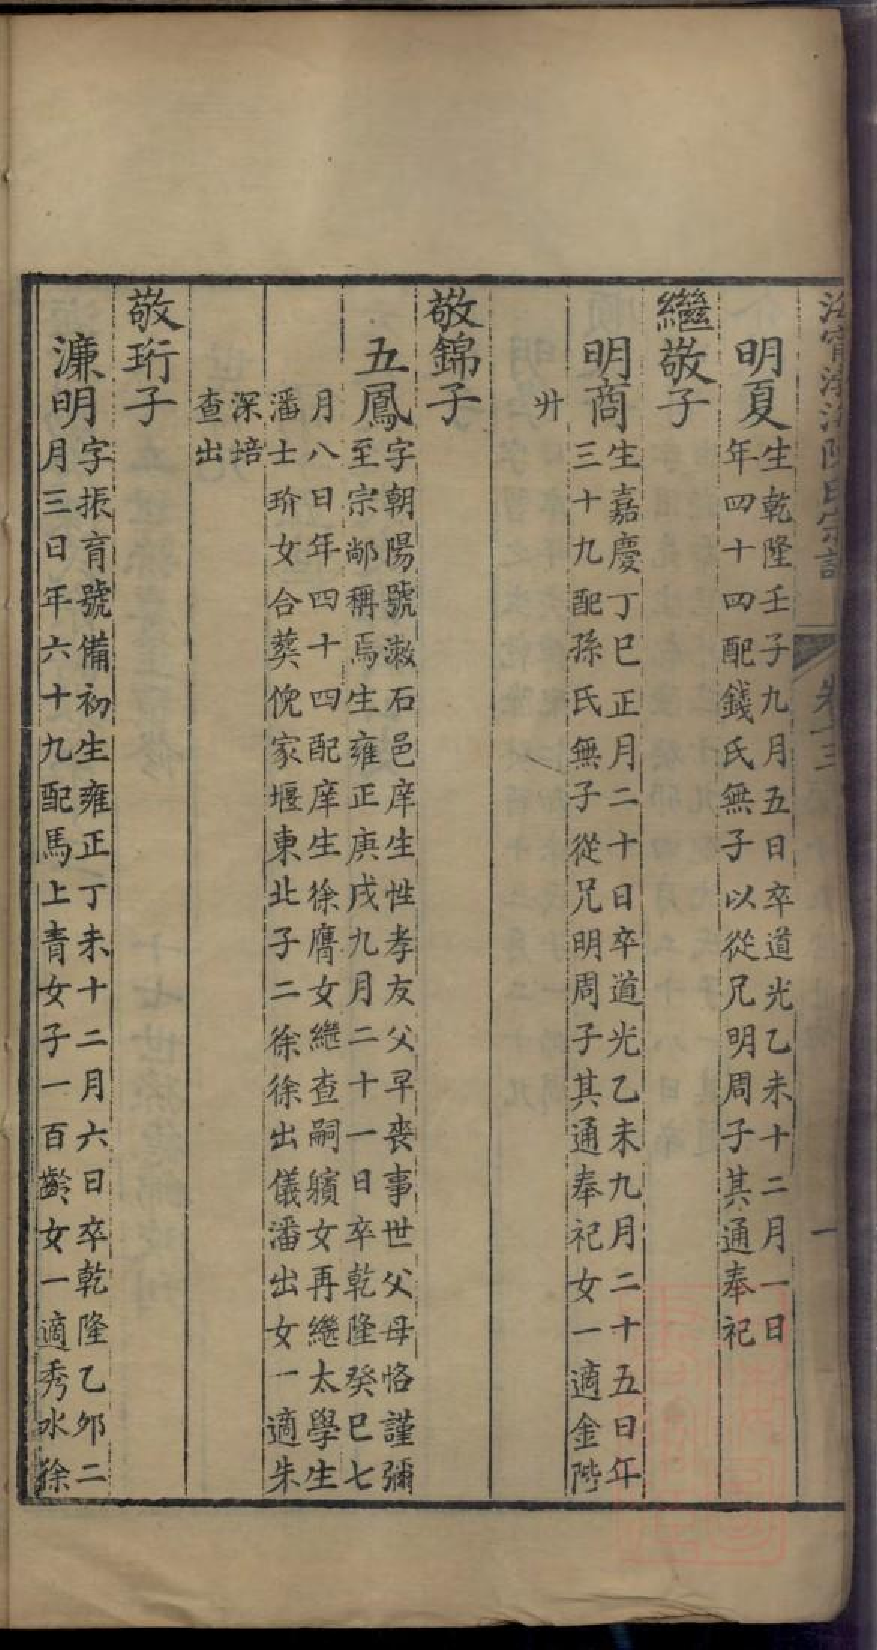 海寧渤海陳氏宗譜
卷十三
一
明夏
生乾隆壬子九月五日卒道光乙未十二月一日
年四十四配錢氏無子以從兄明周子其通奉祀
繼敬子
明商
生嘉慶丁巳正月二十日卒道光乙未九月二十五日年
三十九配孫氏無子從兄明周子其通奉祀女一適金陛
升
敬錦子
五鳳
字朝陽號漱石邑庠生性孝友父早喪事世父母恪謹彌
至宗鄰稱焉生雍正庚戌九月二十一日卒乾隆癸巳七
月八日年四十四配庠生徐膺女繼查嗣鑌女再繼太學生
潘士玠女合葬倪家堰東北子二徐徐出儀潘出女一適朱
深培
查出
敬珩子
濂明
字振育號備初生雍正丁未十二月六日卒乾隆乙卯二
月三日年六十九配馬上青女子一百齡女一適秀水徐